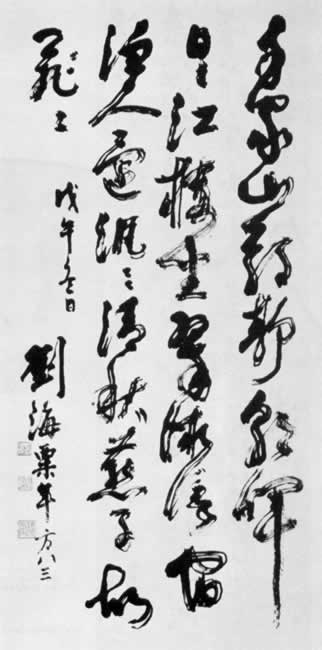 千家山郭靜朝暉
日々江樓坐翠微信宿
漁人還汎々清秋燕子故
飛々
戊午冬日
劉海粟年方八三